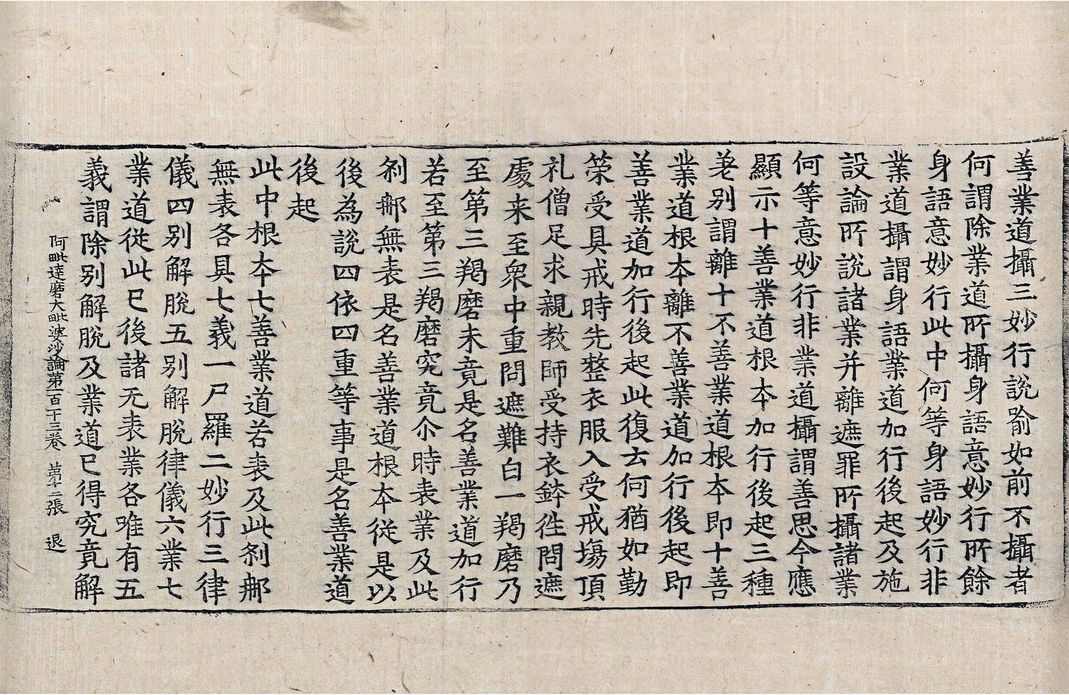 善業道攝三妙行說喻如前不攝者
何謂除業道所攝身語意妙行所餘
身語意妙行此中何等身語妙行非
業道攝謂身語業道加行後起及施
設論所說諸業并離遮罪所攝諸業
何等意妙行非業道攝謂善思今應
顯示十善業道根本加行後起三種
差別謂離十不善業道根本即十善
業道根本離不善業道加行後起即
善業道加行後起此復云何猶如勤
策受具戒時先整衣服入受戒場頂
礼僧足求親教師受持衣鉢徃問遮
處来至衆中重問遮難白一羯磨乃
至第三羯磨未竟是名善業道加行
若至第三羯磨究竟尒時表業及此
刹那無表是名善業道根本從是以
後為說四依四重等事是名善業道
後起
此中根本七善業道若表及此刹那
無表各具七義一尸羅二妙行三律
儀四別解脫五別解脫律儀六業七
業道從此已後諸无表業各唯有五
義謂除別解脫及業道已得究竟解
阿毗達磨大毗婆沙論第百十三卷 第二張 退